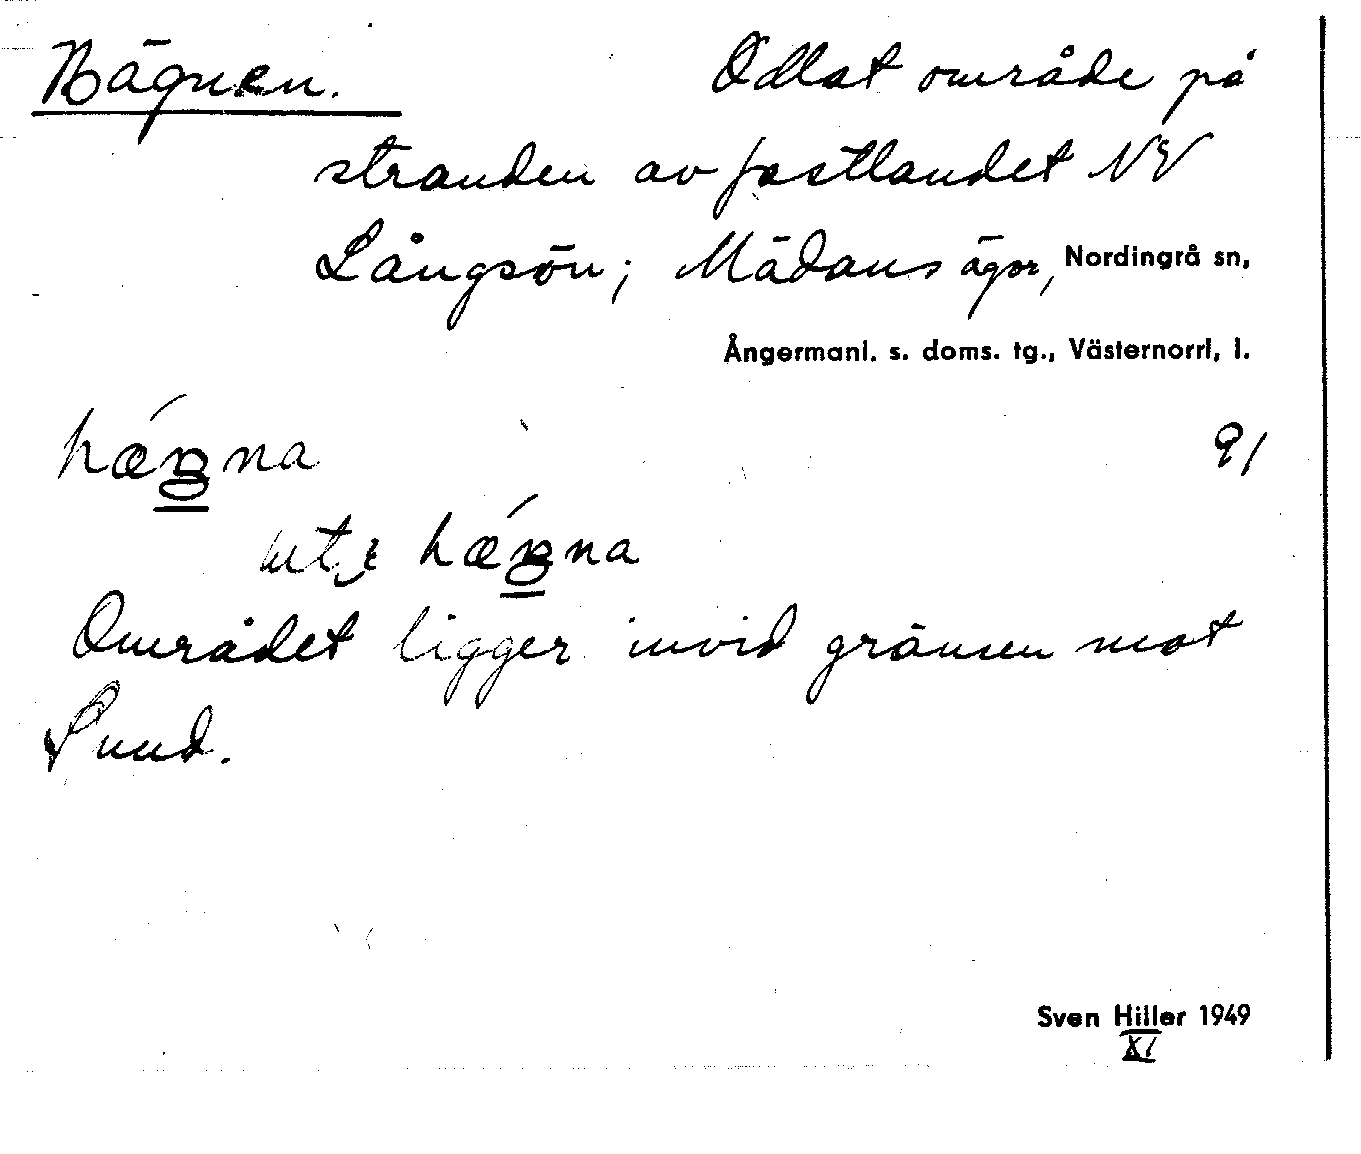 Hägnen. Odlat område på
stranden av fastlandet NV
Långsön; Mädans ägor, Nordingrå sn,
Ångermanl. s. doms. tg., Västernorrl, l.
91
Området ligger invid gränsen mot
Sund.
Sven Hiller 1949
XI